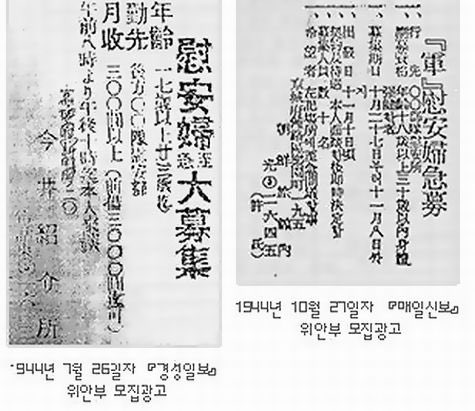 慰安婦至急大募集
年齢 一七歳以上廿三歳迄
勤先 後方〇〇隊慰安部
月收 三〇〇圓以上(前借三〇〇〇圓迄可)
午前八時より午後十時迄本人來談
今井紹介所
1944년 7월 26일자 『경성일보』
위안부 모집광고
『軍』慰安婦急募
一、行先 〇〇部隊慰安所
一、應募資格 年齢十八歳以上三十歳以内身體
一、募集期日 十月二十七日 十一月八日
一、出發日 十一月十日頃
一、契約及待遇 本人面談後即時決定
一、募集人員 數 名
一、希望者 左記場所
京城府鍾路區樂園町一九五
朝鮮旅館内
光③二六四五
(許氏)
1944년 10월 27일자 『매일신보』
위안부 모집광고